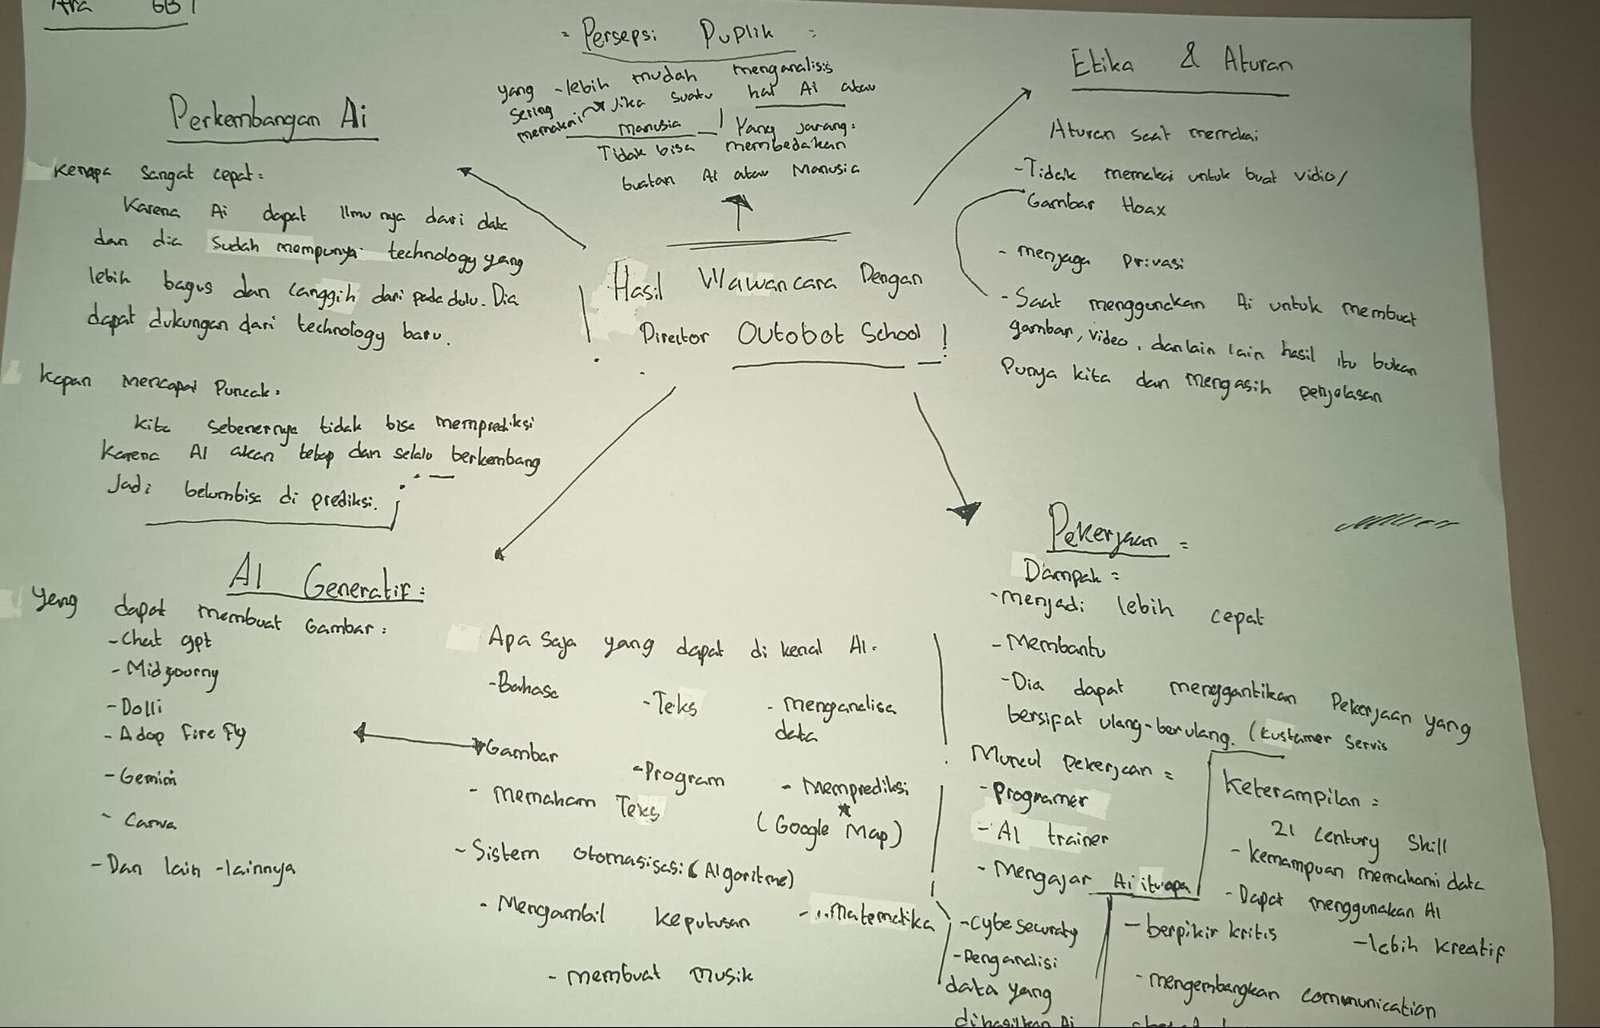 6B1
= Persepsi Puplik =
yang sering memakai → - lebih mudah menganalisis
Jika suatu hal AI atau
Manusia
Yang jarang:
Tidak bisa membedakan
buatan AI atau Manusia
Etika & Aturan
Aturan saat memakai
- Tidak memakai untuk buat vidio/
Gambar Hoax
- menjaga privasi
- Saat menggunakan Ai untuk membuat
gambar, video, dan lain lain hasil itu bukan
Punya kita dan mengasih penjelasan
Perkembangan Ai
Kenapa sangat cepat:
Karena Ai dapat Ilmu nya dari data
dan dia sudah mempunyai technology yang
lebih bagus dan canggih dari pada dulu. Dia
dapat dukungan dari technology baru.
Kapan Mencapai Puncak:
kita sebenernya tidak bisa memprediksi
Karena AI akan tetap dan selalu berkembang
Jadi belum bisa di prediksi.
Hasil Wawancara Dengan
Director Outobot School!
AI Generatif:
Yang dapat membuat Gambar:
- Chat gpt
- Midjourny
- Dolli
- Adop fire fly
- Gemini
- Canva
- Dan lain -lainnya
Apa saja yang dapat di kenal AI.
- Bahasa
- Teks
- menganalisa
data
- Gambar
- Program
- Memprediksi
(Google Map)
- memaham Teks
- Sistem otomasisasi (Algoritme)
- Mengambil keputusan
- Matematika
- membuat musik
Pekerjaan =
Dampak =
- menjadi lebih cepat
- Membantu
- Dia dapat menggantikan Pekerjaan yang
bersifat ulang-berulang. (kustamer servis
Muncul Pekerjaan =
- Programer
- AI trainer
- Mengajar Ai itu apa
- Cybesecuraty
- Penganalisi
data yang
dihasilkan Ai
Keterampilan =
21 Century Skill
- kemampuan memahami data
- Dapat menggunakan AI
- berpikir kritis
- lebih kreatif
- mengembangkan communication